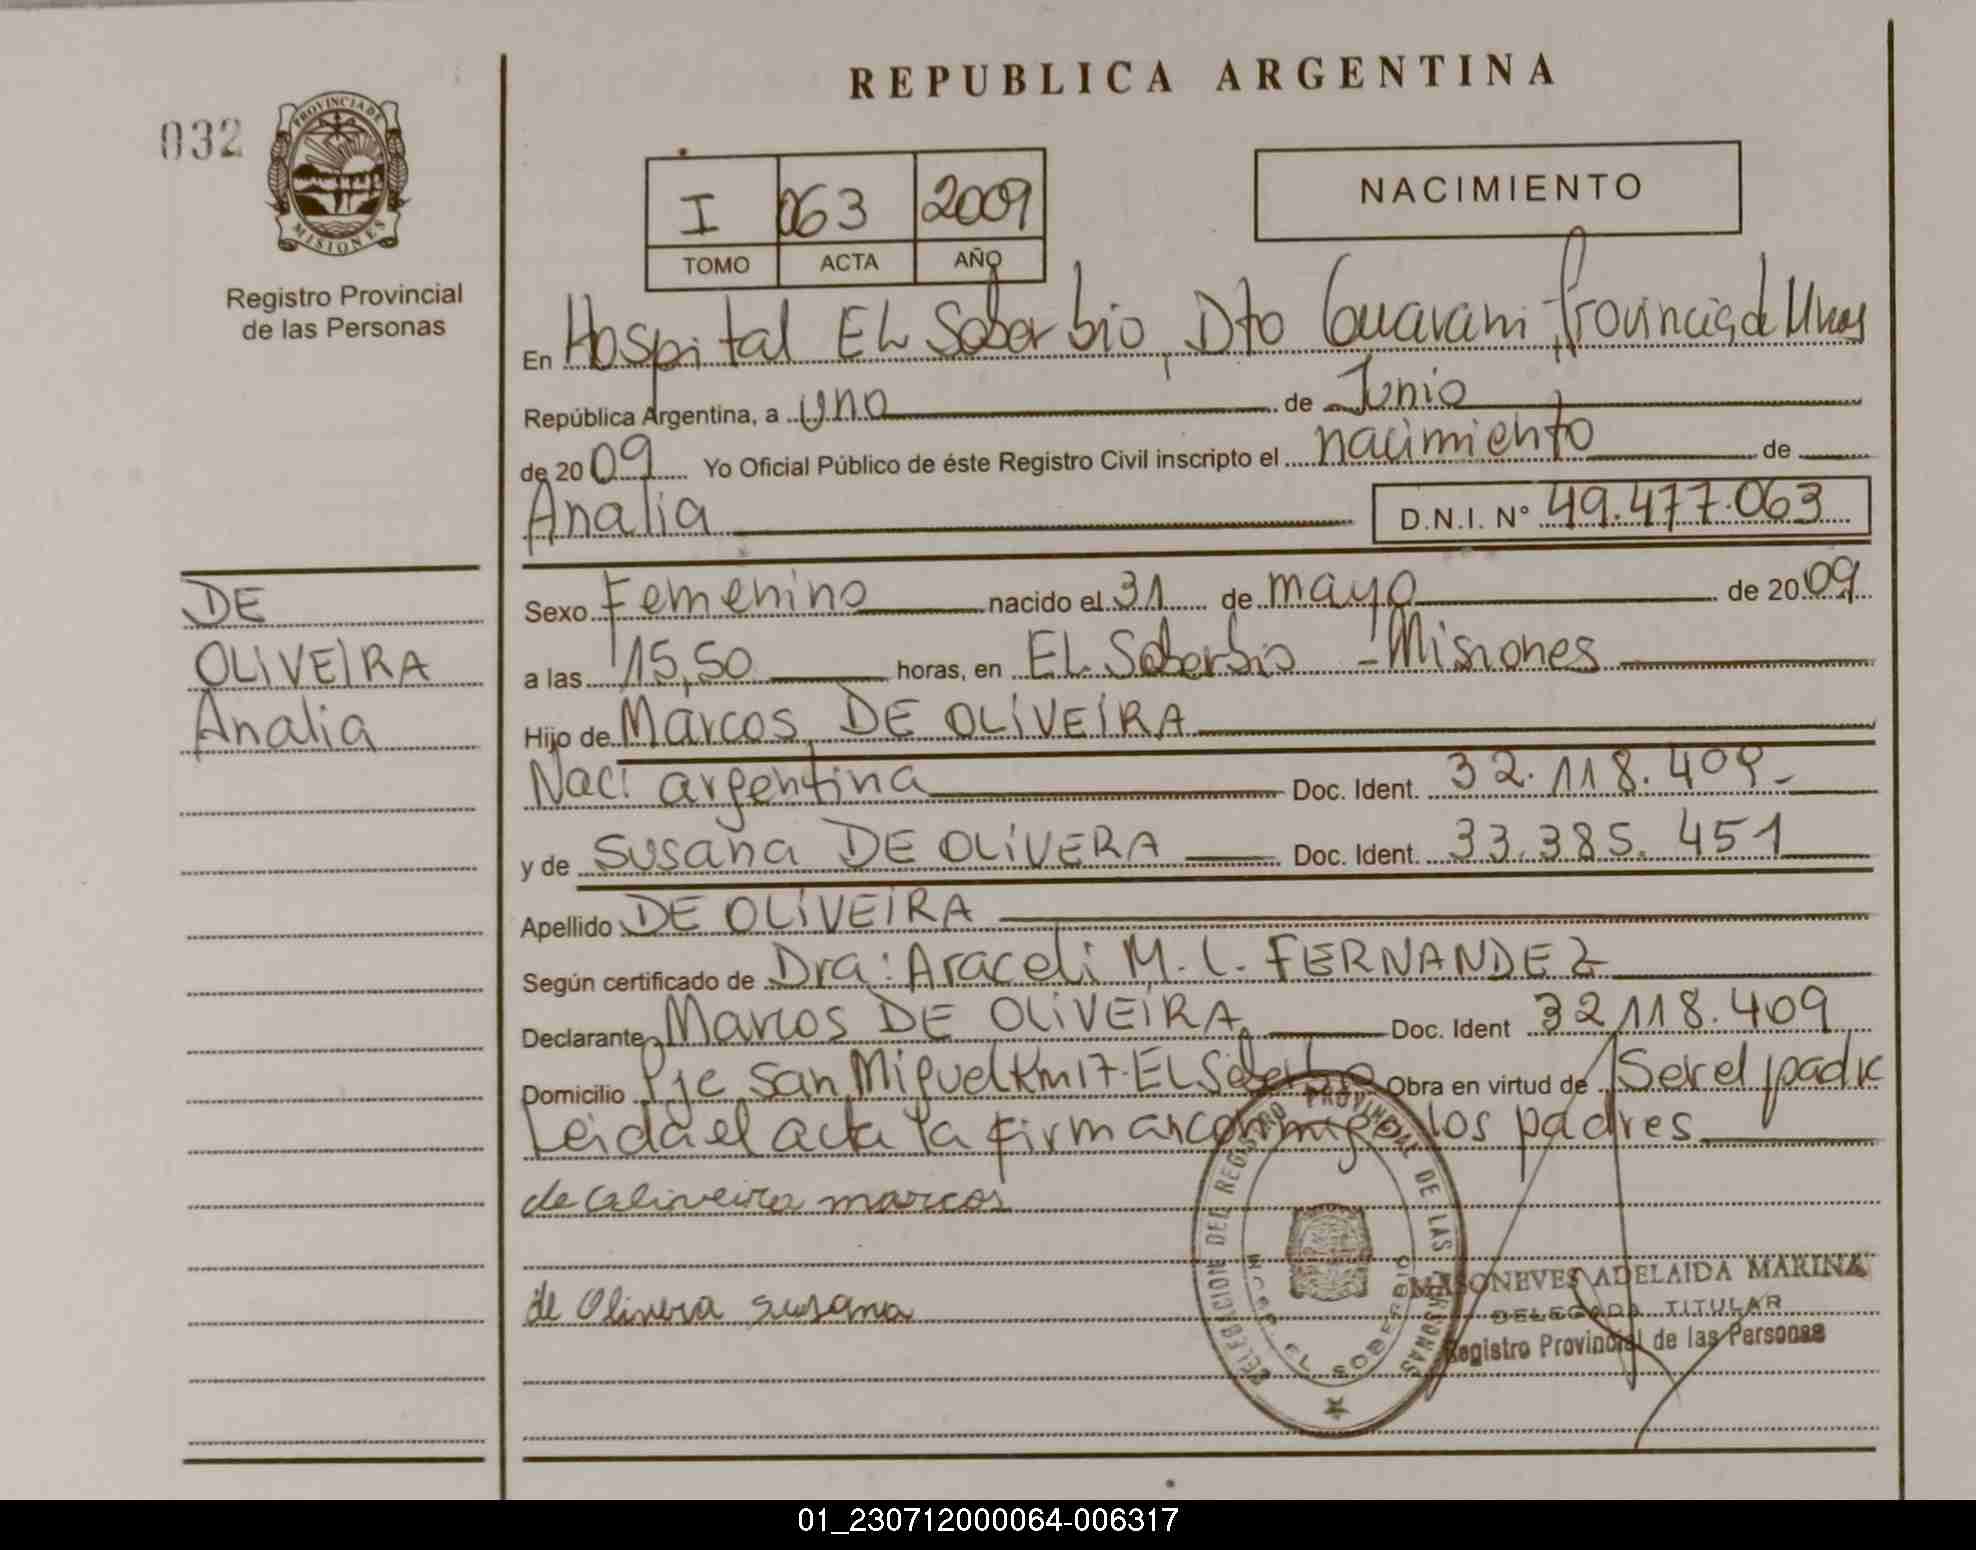 REPUBLICA ARGENTINA
032
PROVINCIA DE
MISIONES
Registro Provincial
de las Personas
NACIMIENTO
I 063 2009
TOMO ACTA AÑO
En Hospital EL Soberbio, Dto Guarani, Provincia de
República Argentina, a uno de Junio
de 2009 Yo Oficial Público de éste Registro Civil inscripto el nacimiento de
Analia D.N.I. N° 49.477.063
DE
OLIVEIRA
Analia
Sexo Femenino nacido el 31 de mayo de 2009
a las 15,50 horas, en EL Soberbio - Misiones
Hijo de Marcos DE OLIVEIRA
Naci argentina Doc. Ident. 32.118.409-
y de Susana DE OLIVERA Doc. Ident. 33.385.451
Apellido DE OLIVEIRA
Según certificado de Dra: Araceli M. L. FERNANDEZ
Declarante Marcos DE OLIVEIRA Doc. Ident 32118.409
Domicilio Pje San Miguel Km 17-EL Soberbio Obra en virtud de Ser el padre
Leida el acta la firman conmigo los padres
de Oliveira marcos
de Olivera susana
DELEGACION DEL REGISTRO PROVINCIAL DE LAS PERSONAS
EL SOBERBIO
MASONEVES ADELAIDA MARINA
DELEGADA TITULAR
Registro Provincial de las Personas
01_230712000064-006317